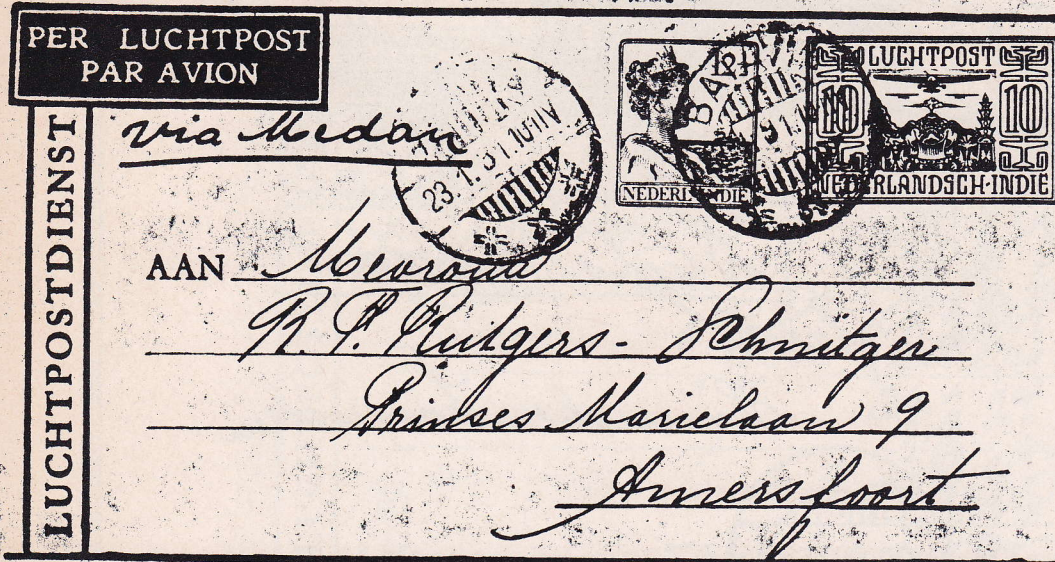 PER LUCHTPOST
PAR AVION
LUCHTPOSTDIENST
via Medan
23.1.31.10
NEDERL. INDIE
LUCHTPOST
10 10
NEDERLANDSCH-INDIE
AAN Mevrouw
R. P. Rutgers - Schnitger
Prinses Marielaan 9
Amersfoort